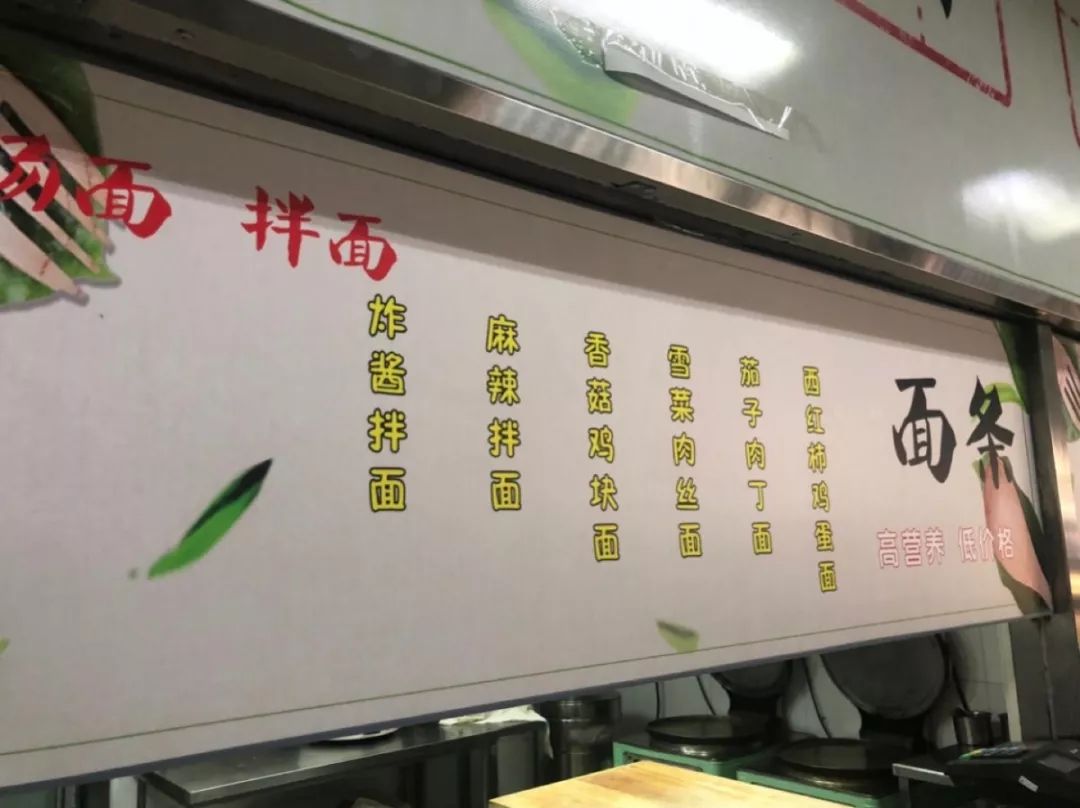 汤面 拌面
炸酱拌面
麻辣拌面
香菇鸡块面
雪菜肉丝面
茄子肉丁面
西红柿鸡蛋面
面条
高营养 低价格